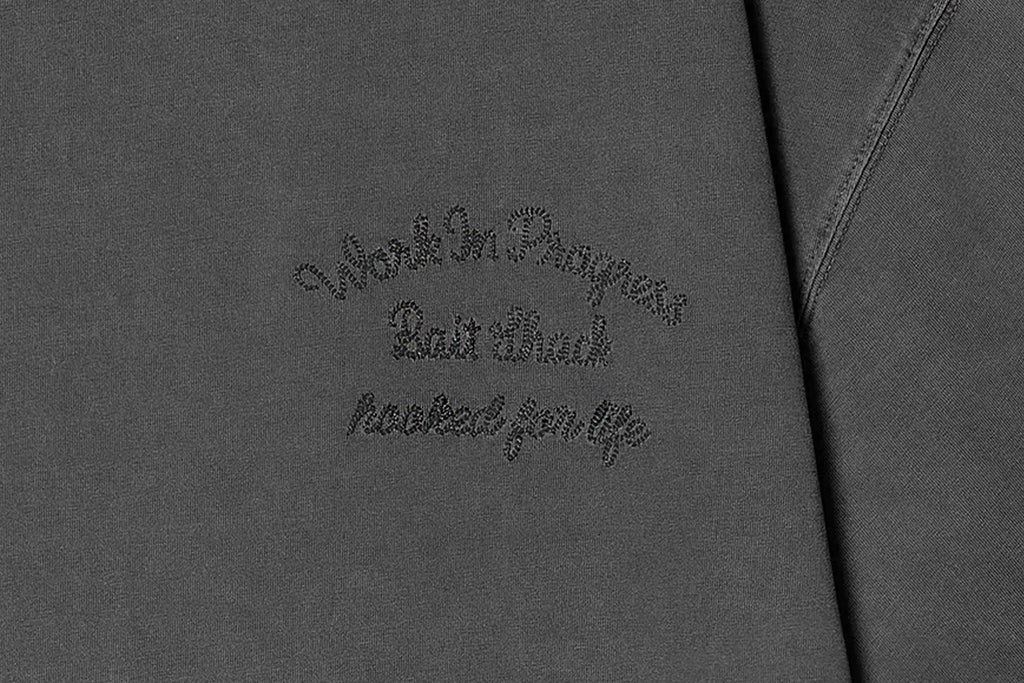 Work In Progress
Bait Shack
hooked for life